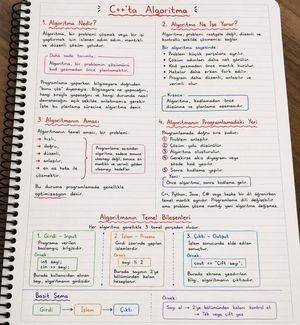 C++'ta Algoritma
1. Algoritma Nedir?
Algoritma, bir problemi çözmek veya bir işi
yaptırmak için izlenen adım adım, mantıklı
ve düzenli çözüm yoludur.
Daha sade tanımla:
Algoritma, bir problemin çözümünü
kod yazmadan önce planlamaktır.
Programlama yaparken bilgisayara doğrudan
"bunu çöz" diyemeyiz. Bilgisayara ne yapacağını,
hangi sırayla yapacağını ve hangi durumda nasıl
davranacağını açık şekilde anlatmamız gerekir.
İşte bu planlama sürecine algoritma denir.
2. Algoritma Ne İşe Yarar?
Algoritma, problemi rastgele değil, düzenli ve
kontrollü şekilde çözmemizi sağlar.
Bir algoritma sayesinde:
Problem küçük parçalara ayrılır.
Çözüm adımları daha net görülür.
Kod yazmadan önce mantık kurulur.
Hatalar daha erken fark edilir.
Program daha düzenli, anlaşılır ve
verimli olur.
Kısaca:
Algoritma, kodlamadan önce
düşünme ve planlama aşamasıdır.
3. Algoritmanın Amacı
Algoritmanın temel amacı, bir problemi:
hızlı,
doğru,
düzenli,
anlaşılır,
en az hata ile
çözmektir.
Programlama açısından
algoritma, sadece cevaba
ulaşmayı değil, cevaba en
mantıklı ve verimli yoldan
ulaşmayı hedefler.
Bu duruma programlamada genellikle
optimizasyon denir.
4. Algoritmanın Programlamadaki Yeri
Programlamada doğru sıra şudur:
1 Problem anlaşılır
2 Çözüm yolu düşünülür
3 Algoritma oluşturulur
4 Gerekirse akış diyagramı veya
sözde kod yazılır
5 Sonra kodlama yapılır.
Yani:
Önce algoritma, sonra kodlama gelir.
C++, Python, Java, C# veya başka bir dil öğrenirken
temel mantık aynıdır. Programlama dili değişebilir
ama problem çözme mantığı yani algoritma değişmez.
Algoritmanın Temel Bileşenleri
Her algoritma genellikle 3 temel parçadan oluşur:
1. Girdi - Input
Programa verilen
başlangıç bilgisidir.
Örnek:
int sayi;
cin >> sayi;
Burada kullanıcıdan alınan
sayı, algoritmanın girdisidir.
2. İşlem - Process
Girdi üzerinde yapılan
işlemlerdir.
Örnek:
sayi % 2
Burada sayının 2'ye
bölümünden kalan
hesaplanır.
3. Çıktı - Output
İşlem sonucunda elde edilen
sonuçtur.
Örnek:
cout << "Çift sayi";
Burada ekrana yazdırılan
bilgi, algoritmanın çıktısıdır.
Basit Şema
Girdi → İşlem → Çıktı
Örnek:
Sayı al → 2'ye bölümünden kalanı kontrol et
→ Tek veya çift yaz